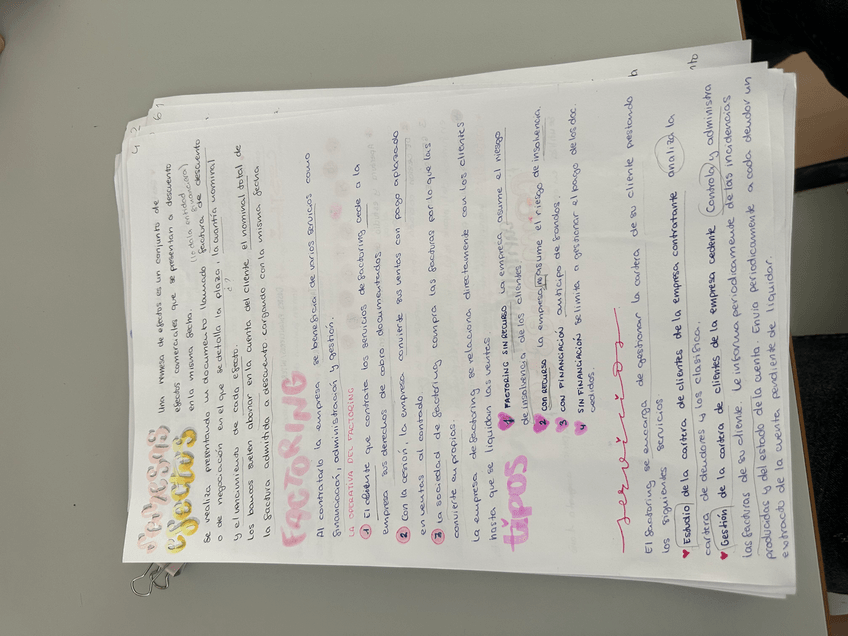 Remesas efectos
Una remesa de efectos es un conjunto de
efectos comerciales que se presentan a descuento
en la misma fecha. (toda la entidad financiera)
se realiza presentando un documento llamado factura de descuento
o de negociación en el que se detalla la plazo, la cuantía nominal
y el vencimiento de cada efecto.
los bancos suelen abonar en la cuenta del cliente el nominal total de
la factura admitida a descuento cargando con la misma fecha
FACTORING
Al contratarlo la empresa se beneficia de varios servicios como
financiación, administración y gestión.
LA OPERATIVA DEL FACTORING
1 El cliente que contrata los servicios de factoring cede a la
empresa sus derechos de cobro documentados
2 Con la cesión, la empresa convierte sus ventas con pago aplazado
en ventas al contado.
3 la sociedad de factoring compra las facturas por lo que las
convierte en propias.
La empresa de factoring se relaciona directamente con los clientes
hasta que se liquidan las ventas.
tipos
1 FACTORING SIN RECURSO La empresa asume el riesgo
de insolvencia de los clientes
2 CON RECURSO la empresa no asume el riesgo de insolvencia.
3 CON FINANCIACIÓN anticipo de fondos.
4 SIN FINANCIACIÓN se limita a gestionar el pago de los doc.
cedidos.
servicios
El factoring se encarga de gestionar la cartera de su cliente prestando
los siguientes servicios
♥ Estudio de la cartera de clientes de la empresa contratante analiza la
cartera de deudores y los clasifica.
♥ Gestión de la cartera de clientes de la empresa cedente Controla y administra
las facturas de su cliente le informa periodicamente de las incidencias
producidas y del estado de la cuenta. Envia periodicamente a cada deudor un
extracto de la cuenta pendiente de liquidar.